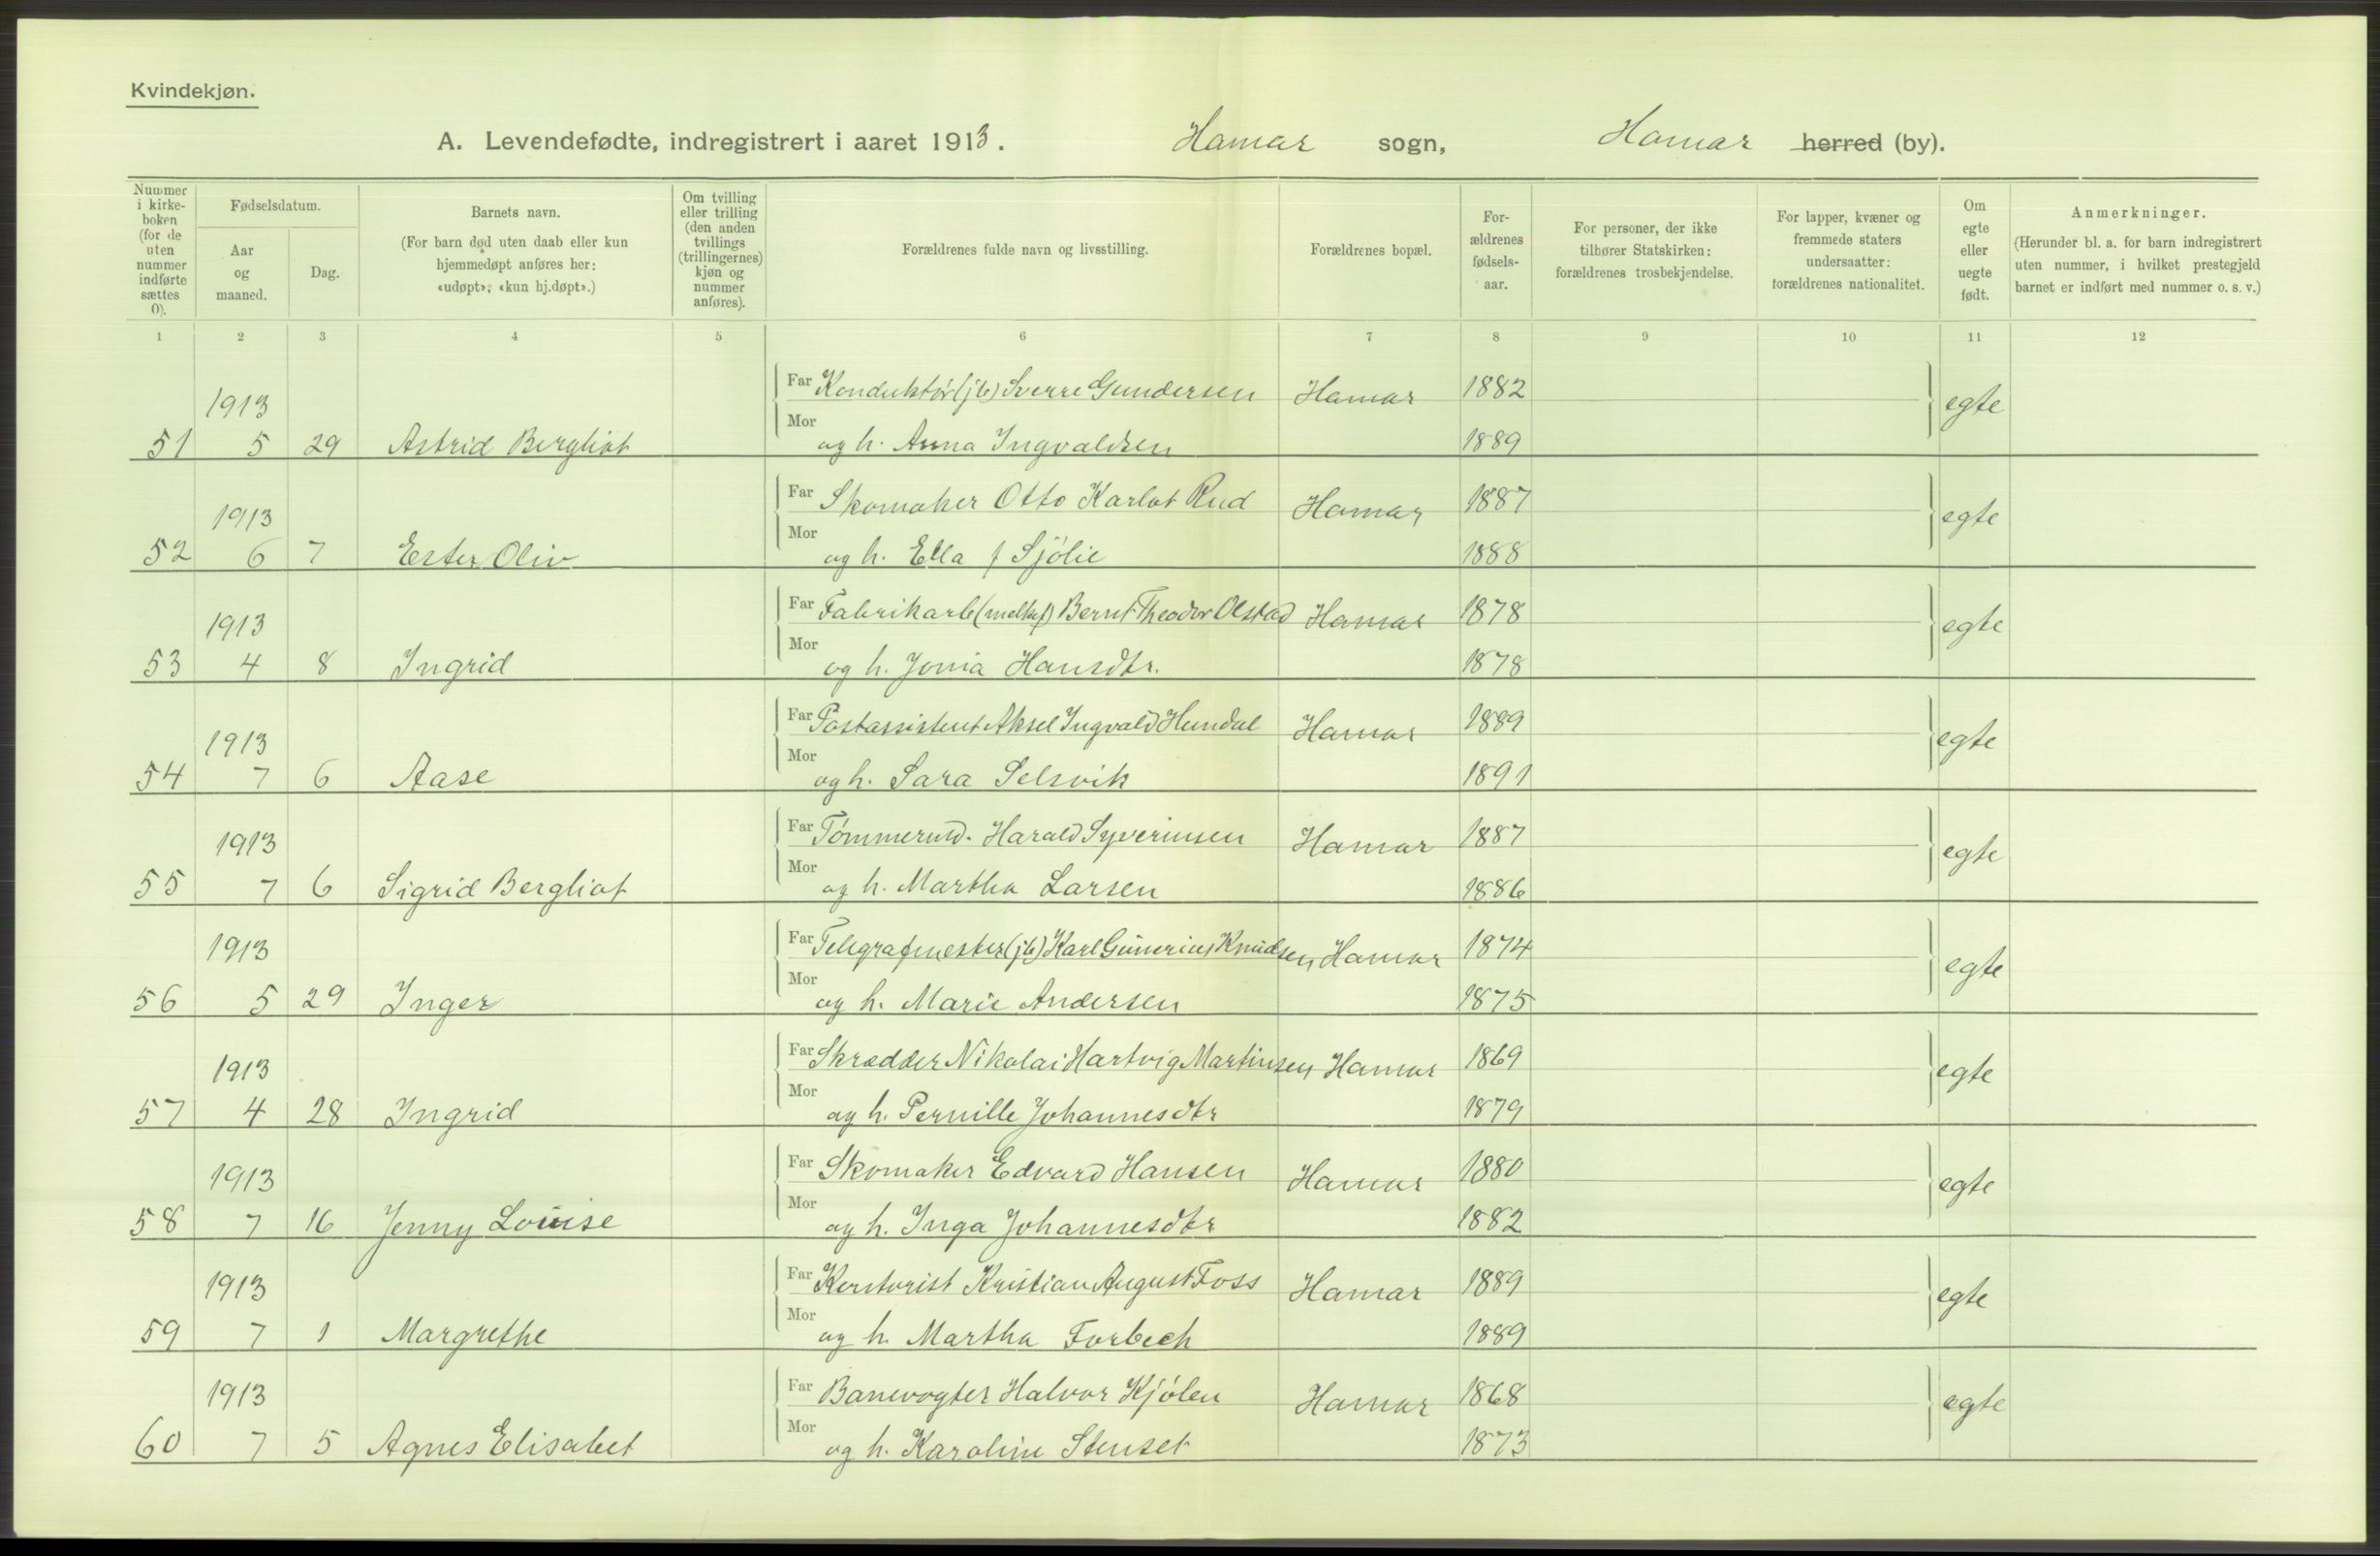 Kvindekjøn.
A. Levendefødte, indregistrert i aaret 1913. Hamar sogn, Hamar herred (by).
Nummer i kirke-boken (for de uten nummer indførte sættes 0).
Fødselsdatum.
Aar og maaned.
Dag.
Barnets navn.
(For barn død uten daab eller kun hjemmedøpt anføres her: «udøpt», «kun hj.døpt».)
Om tvilling eller trilling (den anden tvillings (trillingernes) kjøn og nummer anføres).
Forældrenes fulde navn og livsstilling.
Forældrenes bopæl.
For-ældrenes fødsels-aar.
For personer, der ikke tilhører Statskirken: forældrenes trosbekjendelse.
For lapper, kvæner og fremmede staters undersaatter: forældrenes nationalitet.
Om egte eller uegte født.
Anmerkninger.
(Herunder bl. a. for barn indregistrert uten nummer, i hvilket prestegjeld barnet er indført med nummer o. s. v.)
1 2 3 4 5 6 7 8 9 10 11 12
1913 Far Konduktör (jb) Sverre Gundersen Hamar 1882 egte
51 5 29 Astrid Bergliot Mor og h. Anna Ingvaldsen 1889
1913 Far Skomaker Otto Karlot Rud Hamar 1887 egte
52 6 7 Ester Oliv Mor og h. Ella f Sjölie 1888
1913 Far Fabrikarb (melkef) Bernt Theodor Olstad Hamar 1878 egte
53 4 8 Ingrid Mor og h. Jonia Hansdtr. 1878
1913 Far Postassistent Aksel Ingvald Hundal Hamar 1889 egte
54 7 6 Aase Mor og h. Sara Selsvik 1891
1913 Far Harald Syverinsen Hamar 1887 egte
55 7 6 Sigrid Bergliot Mor og h. Martha Larsen 1886
1913 Far Telegrafmester (jb) Karl Gunerius Knudsen Hamar 1874 egte
56 5 29 Inger Mor og h. Marie Andersen 1875
1913 Far Skrædder Nikolai Hartvig Martinsen Hamar 1869 egte
57 4 28 Ingrid Mor og h. Pernille Johannesdtr 1879
1913 Far Skomaker Edvard Hansen Hamar 1880 egte
58 7 16 Jenny Louise Mor og h. Inga Johannesdtr 1882
1913 Far Kontorist Kristian August Foss Hamar 1889 egte
59 7 1 Margrethe Mor og h. Martha Forbech 1889
1913 Far Banevogter Halvor Kjölen Hamar 1868 egte
60 7 5 Agnes Elisabet Mor og h. Karoline Stenset 1873